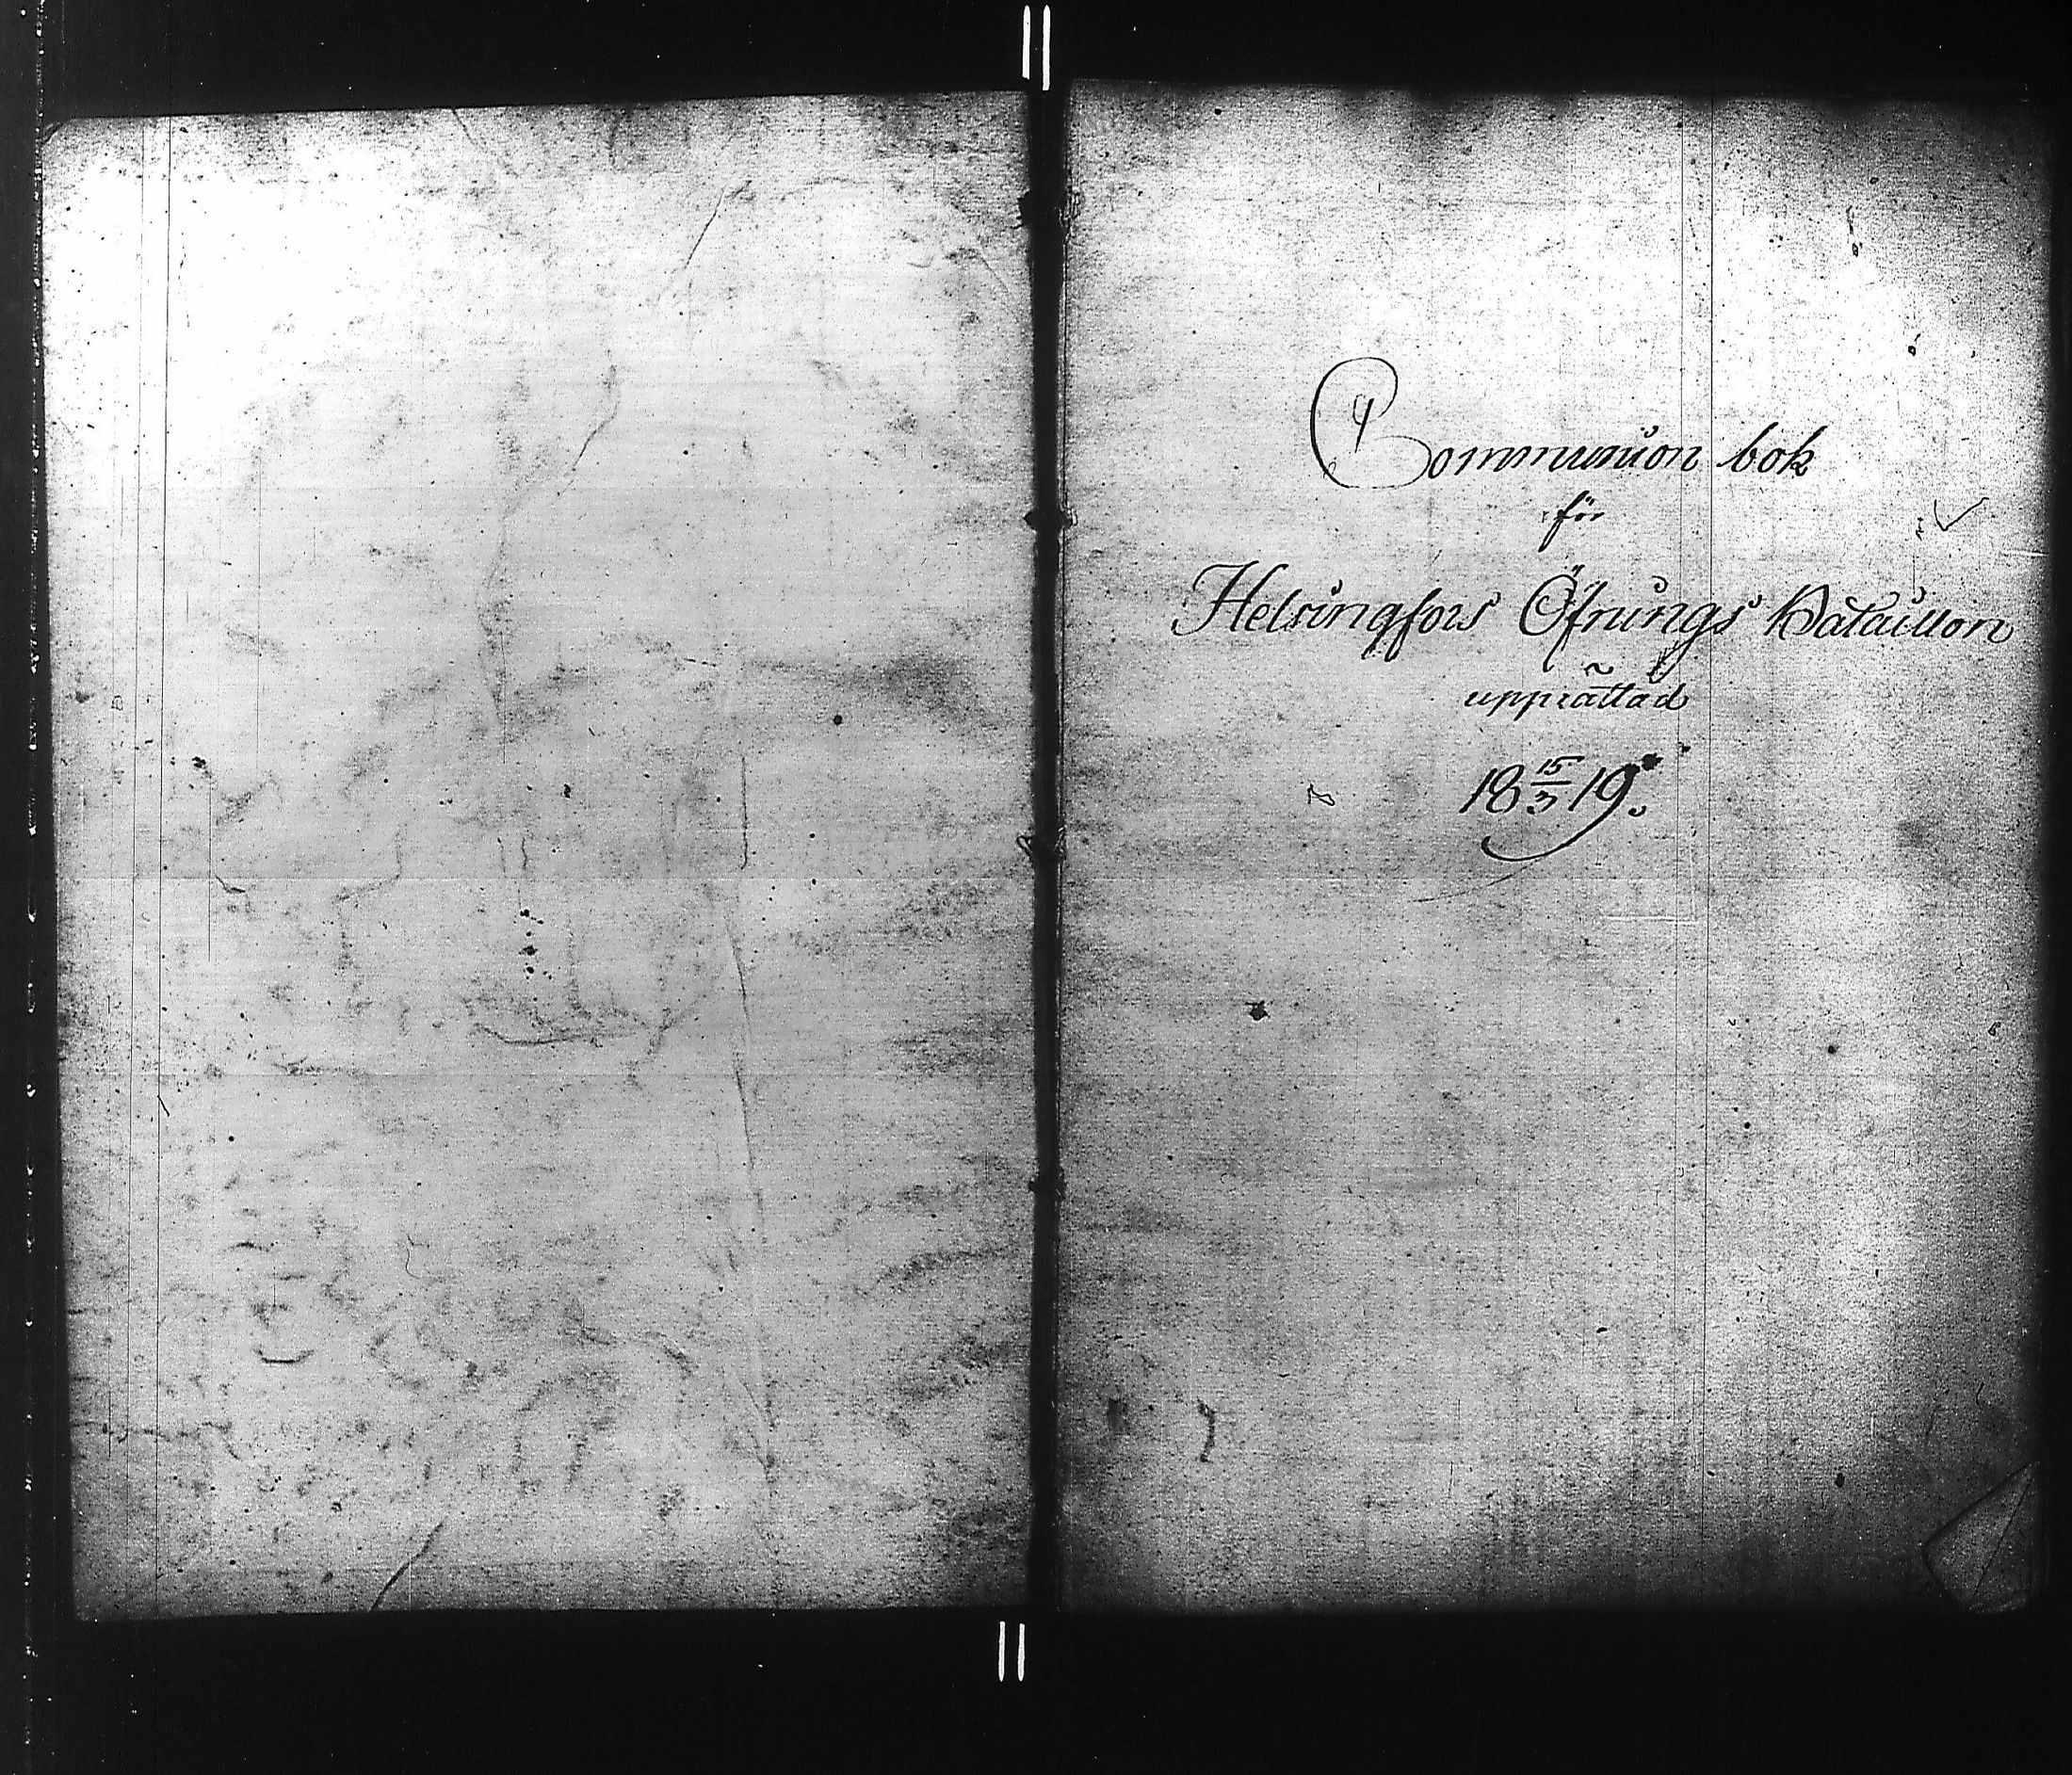 Communion bok
för
Helsingfors Öfnings Bataillon
upprättad
18 15/3 19.